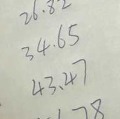 26.82
34.65
43.47